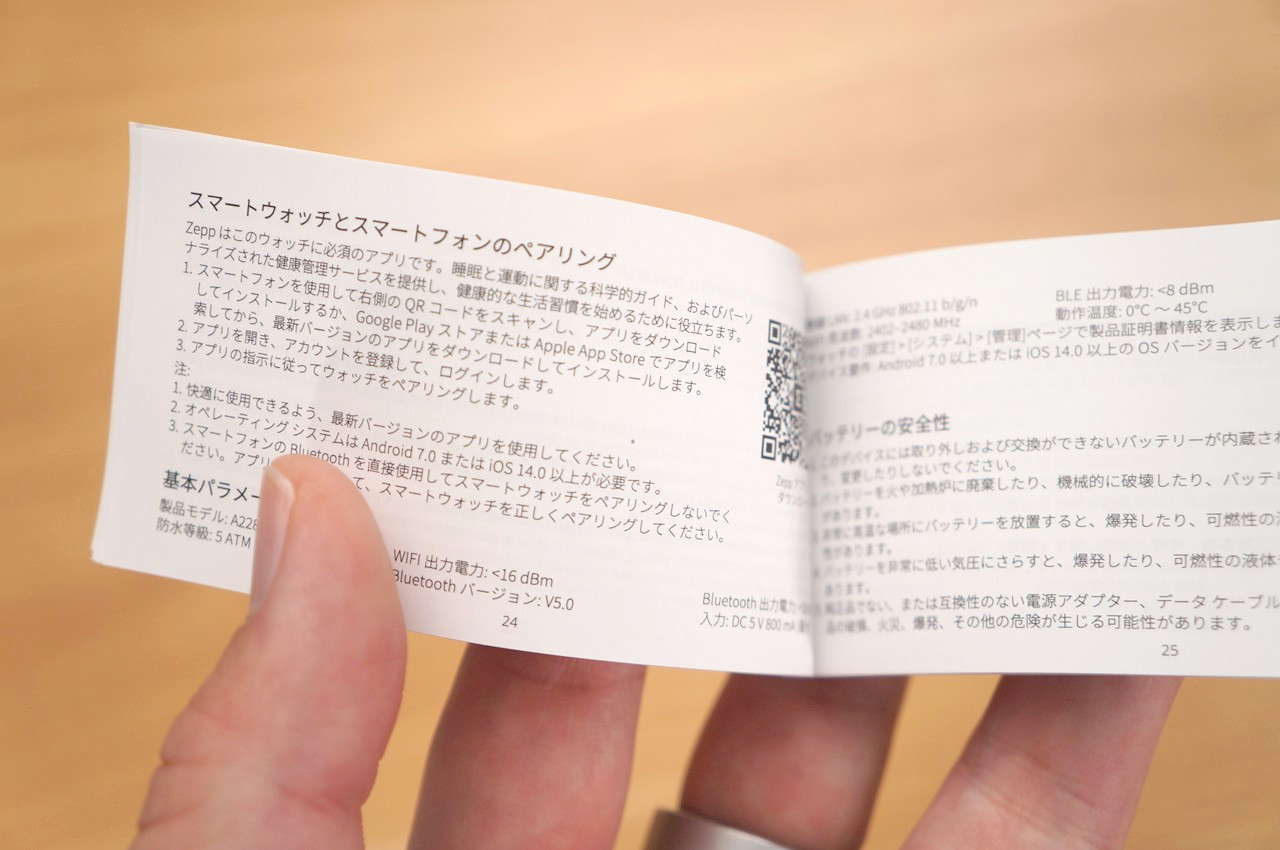 スマートウォッチとスマートフォンのペアリング
Zepp はこのウォッチに必須のアプリです。睡眠と運動に関する科学的ガイド、およびパーソ
ナライズされた健康管理サービスを提供し、健康的な生活習慣を始めるために役立ちます。
1. スマートフォンを使用して右側の QR コードをスキャンし、アプリをダウンロード
してインストールするか、Google Play ストアまたは Apple App Store でアプリを検
索してから、最新バージョンのアプリをダウンロードしてインストールします。
2. アプリを開き、アカウントを登録して、ログインします。
3. アプリの指示に従ってウォッチをペアリングします。
注:
1. 快適に使用できるよう、最新バージョンのアプリを使用してください。
2. オペレーティングシステムは Android 7.0 または iOS 14.0 以上が必要です。
3. スマートフォンの Bluetooth を直接使用してスマートウォッチをペアリングしないでく
ださい。アプリ て、スマートウォッチを正しくペアリングしてください。
Zepp ア
ダウン
基本パラメー
製品モデル: A228
防水等級: 5 ATM
WIFI 出力電力: <16 dBm
Bluetooth バージョン: V5.0
Bluetooth 出力電力:
入力: DC 5 V 800 mA
24
LAN: 2.4 GHz 802.11 b/g/n
BLE 出力電力: <8 dBm
波数: 2402–2480 MHz
動作温度: 0°C ～ 45°C
ッチの [設定] > [システム] > [管理]ページで製品証明書情報を表示しま
バイス要件: Android 7.0 以上または iOS 14.0 以上の OS バージョンをイ
バッテリーの安全性
このデバイスには取り外しおよび交換ができないバッテリーが内蔵され
変更したりしないでください。
バッテリーを火や加熱炉に廃棄したり、機械的に破壊したり、バッテリ
があります。
非常に高温な場所にバッテリーを放置すると、爆発したり、可燃性の
性があります。
バッテリーを非常に低い気圧にさらすと、爆発したり、可燃性の液体
あります。
純正品でない、または互換性のない電源アダプター、データ ケーブル
品の破損、火災、爆発、その他の危険が生じる可能性があります。
25